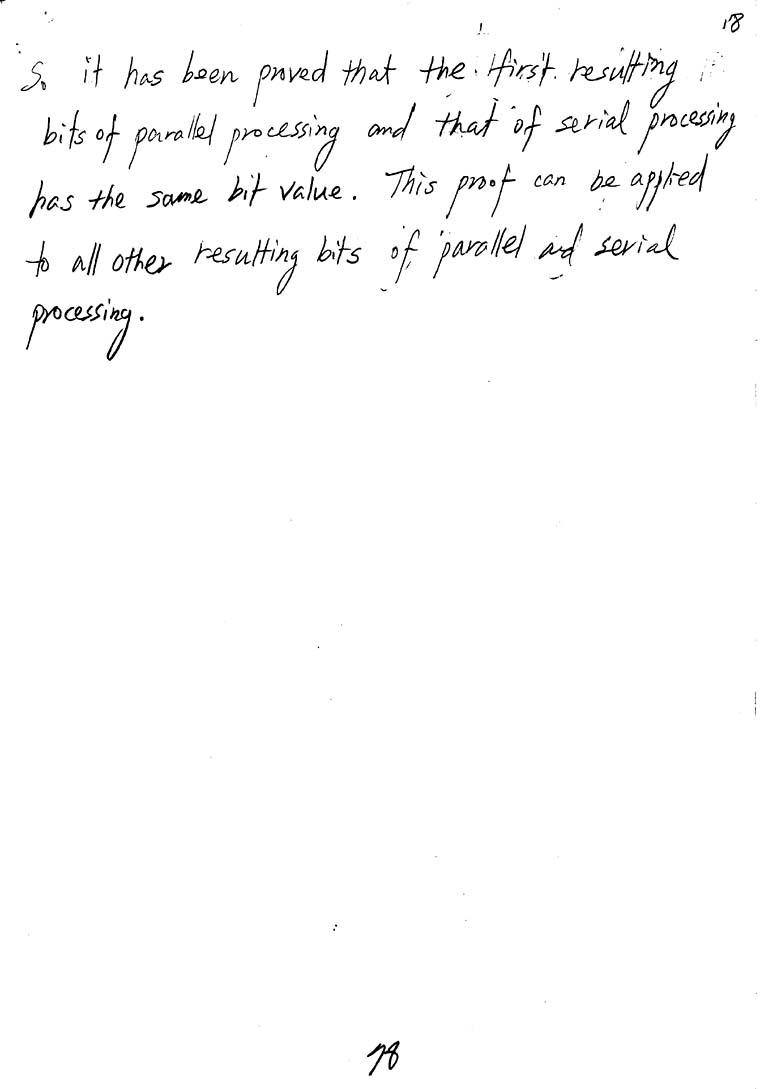 18
So it has been proved that the first resulting
bits of parallel processing and that of serial processing
has the same bit value. This proof can be applied
to all other resulting bits of parallel and serial
processing.
78